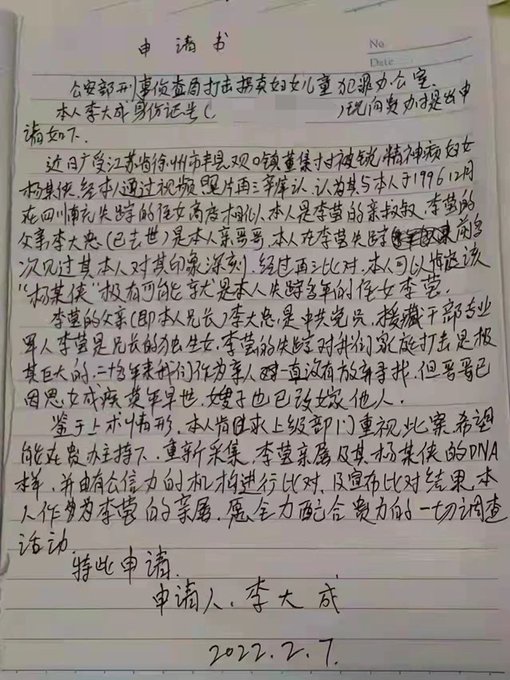 申请书
No.
Date
公安部刑事侦查局打击拐卖妇女儿童犯罪办公室.
本人李大成身份证号( )现向贵办提出申
请如下.
近日广受江苏省徐州市丰县欢口镇董集村被铐精神病妇女
杨某侠.经本人通过视频照片再三辨认.认为其与本人于1996.12月
在四川南充失踪的侄女高度相似.本人是李莹的亲叔叔.李莹的
父亲李大忠(已去世)是本人亲哥哥.本人在李莹失踪前多
次见过其本人对其印象深刻.经过再三比对.本人可以怀疑该
"杨某侠"极有可能就是本人失踪多年的侄女李莹.
李莹的父亲(即本人兄长)李大忠.是中共党员.援藏干部专业
军人李莹是兄长的独生女.李莹的失踪对我们家庭打击是极
其巨大的.二十多年来我们作为亲人一直没有放弃寻找.但哥哥已
因思女成疾英年早世.嫂子也已改嫁他人.
鉴于上术情形.本人肯求上级部门重视此案.希望
能在贵办主持下.重新采集.李莹亲属及其杨某侠的DNA
样.并由有公信力的机构进行比对.及宣布比对结果.本
人作为李莹的亲属.愿全力配合贵方的一切调查
活动
特此申请.
申请人.李大成
2022.2.7.